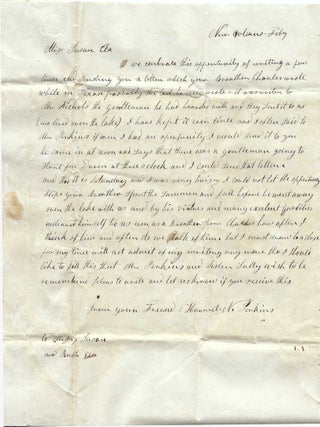 New Orleans Feby
Miss Susan
we embrace this opportunity of writing a few
lines and sending you a letter which your brother Charles wrote
while in Texas probably the last he ever wrote it was written to
Mr Nichols the gentleman he had boarded with and they sent it to us
(we live over the lake) I have kept it ever since and often said to
Mr Perkins if ever I had an opportunity I would send it to you
he came in at noon and says that there was a gentleman going to
start for at three o'clock and I could send that letter
and tho it is Saturday and I was very busy I could not let the opportunity
slip your brother spent the summer and fall before he went away
over the lake with us and by his virtues and many excelent qualities
endeared himself to us near as a brother poor Charles how often I
think of him and often do we talk of him but I must come to a close
for my time will not admit of my writing any more tho I should
like to fill this sheet Mr Perkins and Sister Sally wish to be
remembered to write and let us know if you receive this
from your Friend Harriet N Perkins
to Miss Susan
and